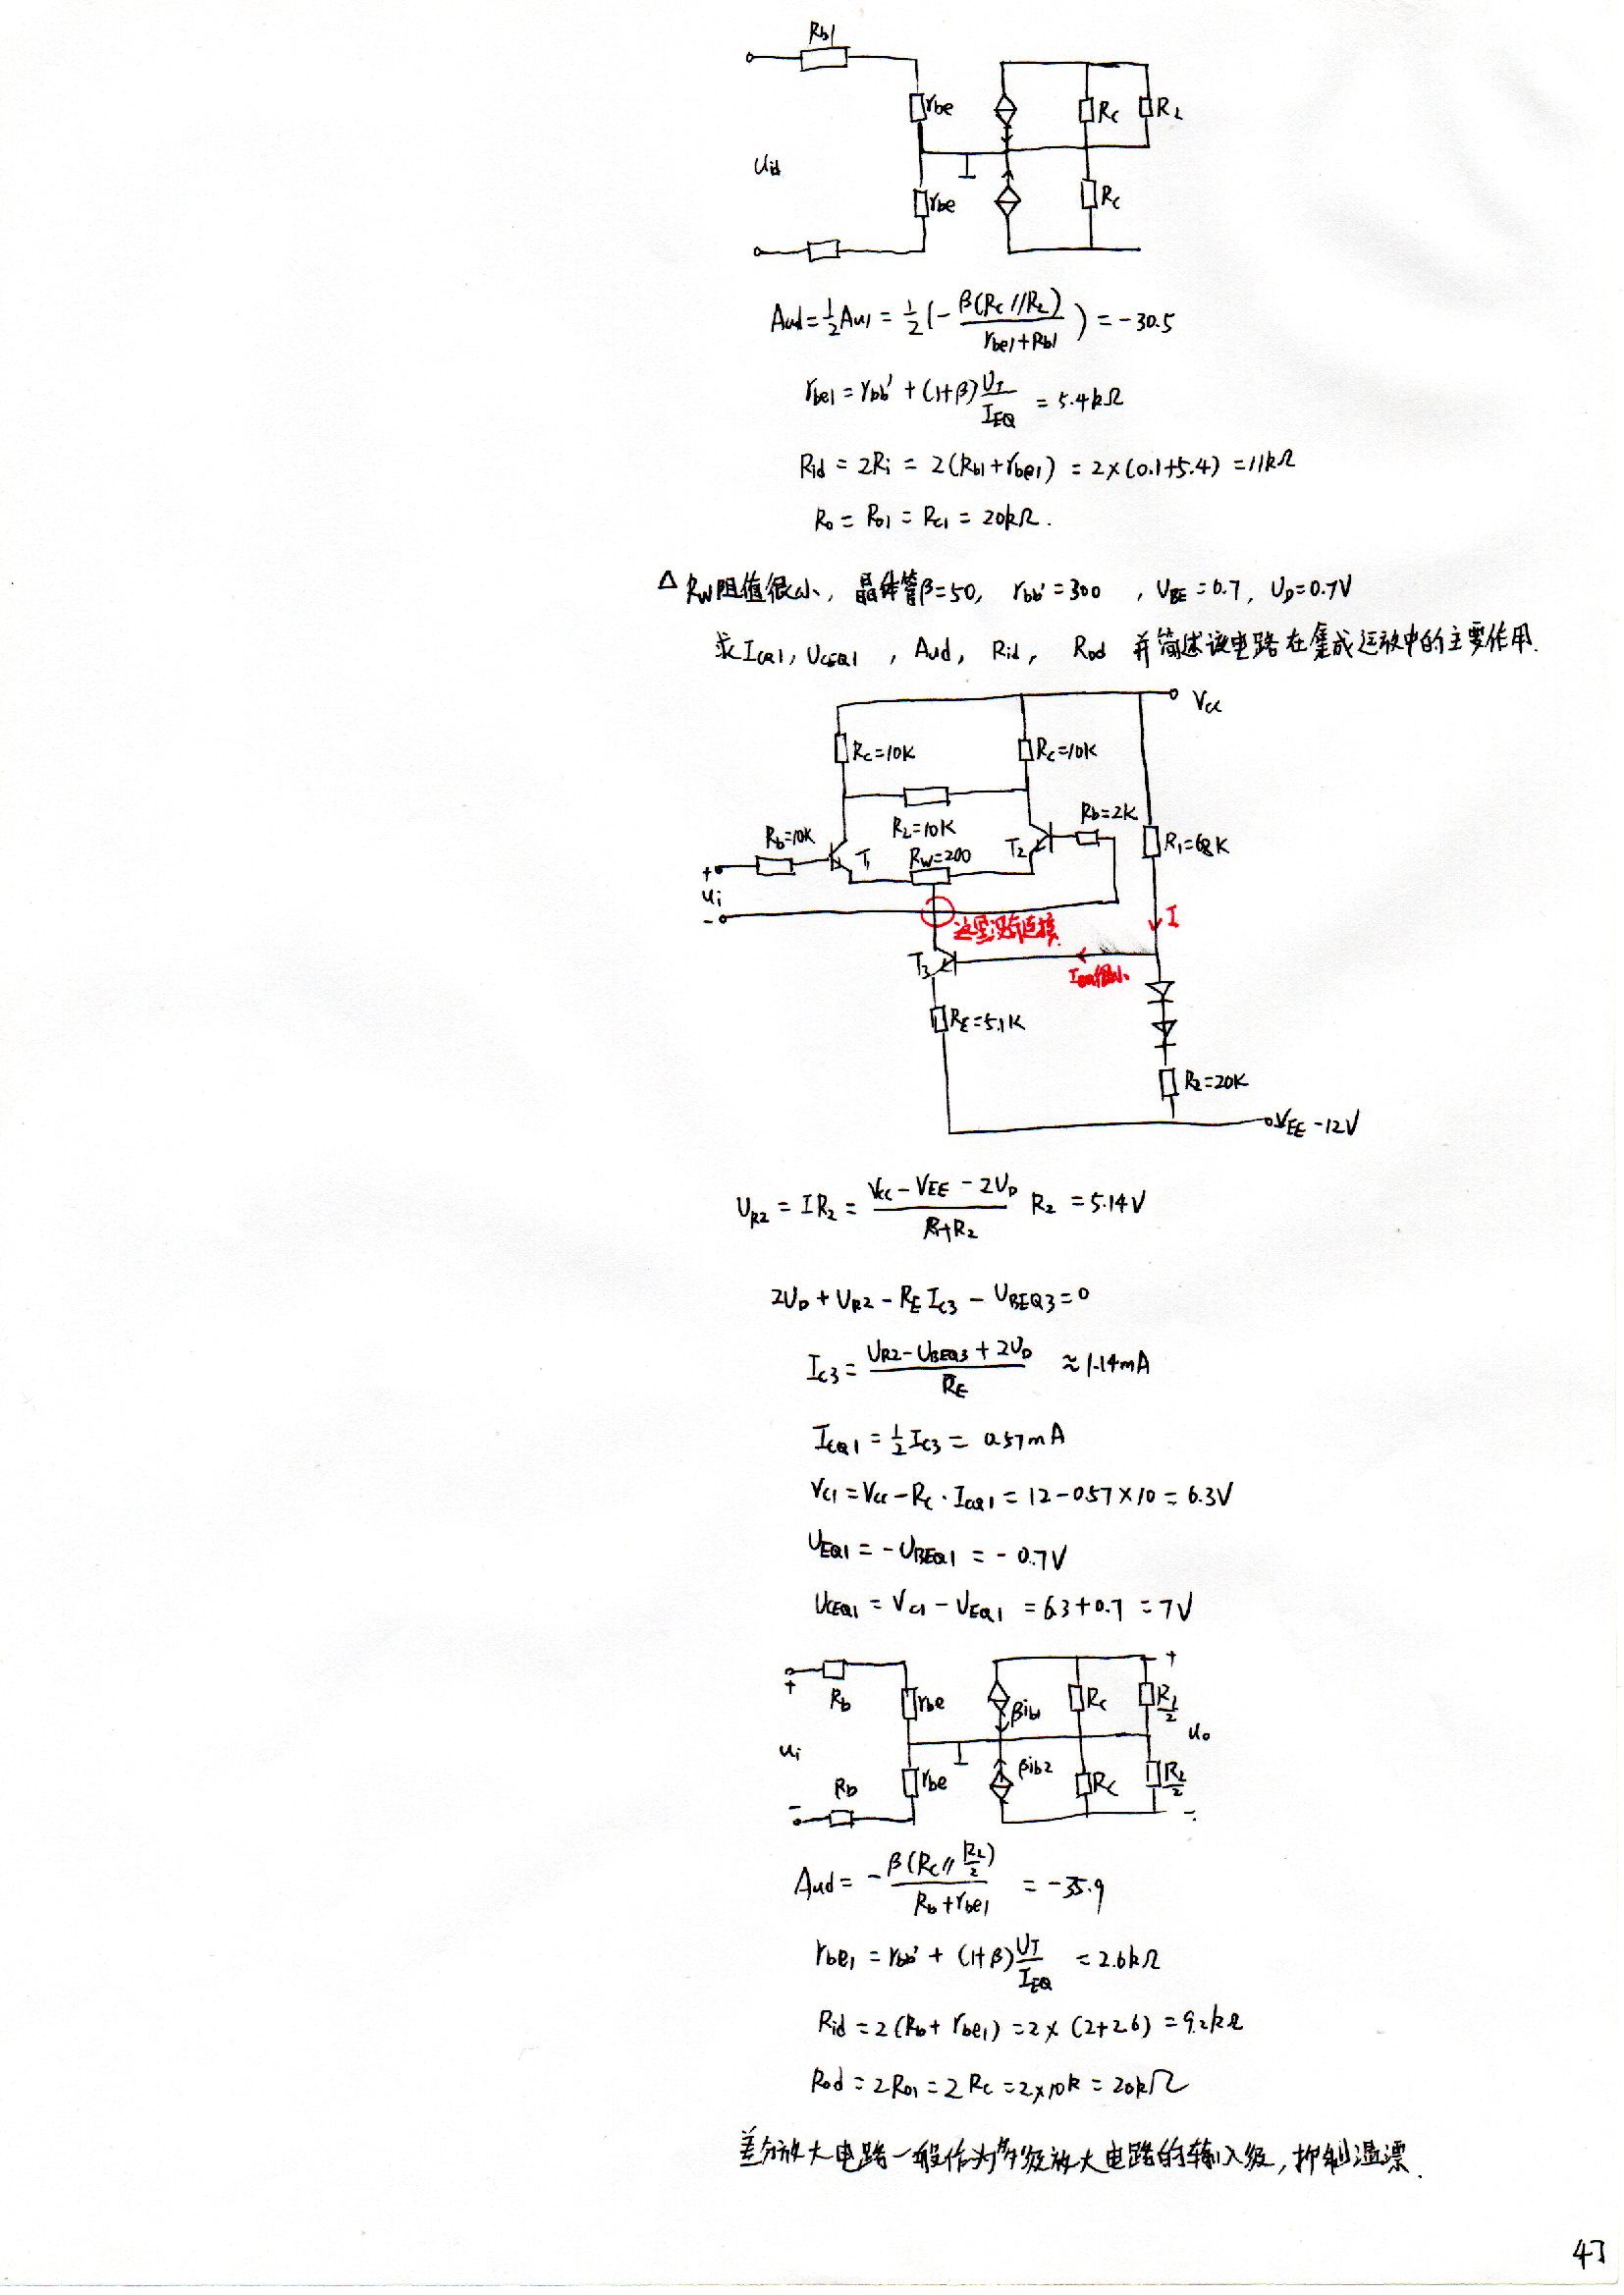 Rb1
rbe
Rc
RL
Uid
rbe
Rc
Aud=½Au1=½(-β(Rc//RL)/(rbe1+Rb1))=-30.5
rbe1=rbb'+(1+β)UT/IEQ=5.4kΩ
Rid=2Ri=2(Rb1+rbe1)=2×(0.1+5.4)=11kΩ
Ro=Ro1=Rc1=20kΩ.
△ RW阻值很小, 晶体管β=50, rbb'=300 , UBE=0.7, UD=0.7V
求ICQ1, UCEQ1 , Aud, Rid, Rod 并简述该电路在集成运放中的主要作用.
Vcc
Rc=10K
Rc=10K
Rb=2K
RL=10K
Rb=10K
T1
RW=200
T2
R1=68K
+
ui
-
这里没有连接
I
T3
IBQ很小
RE=5.1K
R2=20K
VEE -12V
UR2=IR2=(Vcc-VEE-2UD)/(R1+R2) R2=5.14V
2UD+UR2-REIC3-UBEQ3=0
IC3=(UR2-UBEQ3+2UD)/RE≈1.14mA
ICQ1=½IC3=0.57mA
VC1=Vcc-Rc·ICQ1=12-0.57×10=6.3V
UEQ1=-UBEQ1=-0.7V
UCEQ1=VC1-UEQ1=6.3+0.7=7V
+
Rb
rbe
βib1
Rc
RL/2
+
ui
uo
Rb
rbe
βib2
Rc
RL/2
-
-
Aud=-β(Rc//RL/2)/(Rb+rbe1)=-35.9
rbe1=rbb'+(1+β)UT/IEQ=2.6kΩ
Rid=2(Rb+rbe1)=2×(2+2.6)=9.2kΩ
Rod=2Ro1=2Rc=2×10k=20kΩ
差分放大电路一般作为多级放大电路的输入级, 抑制温漂.
47